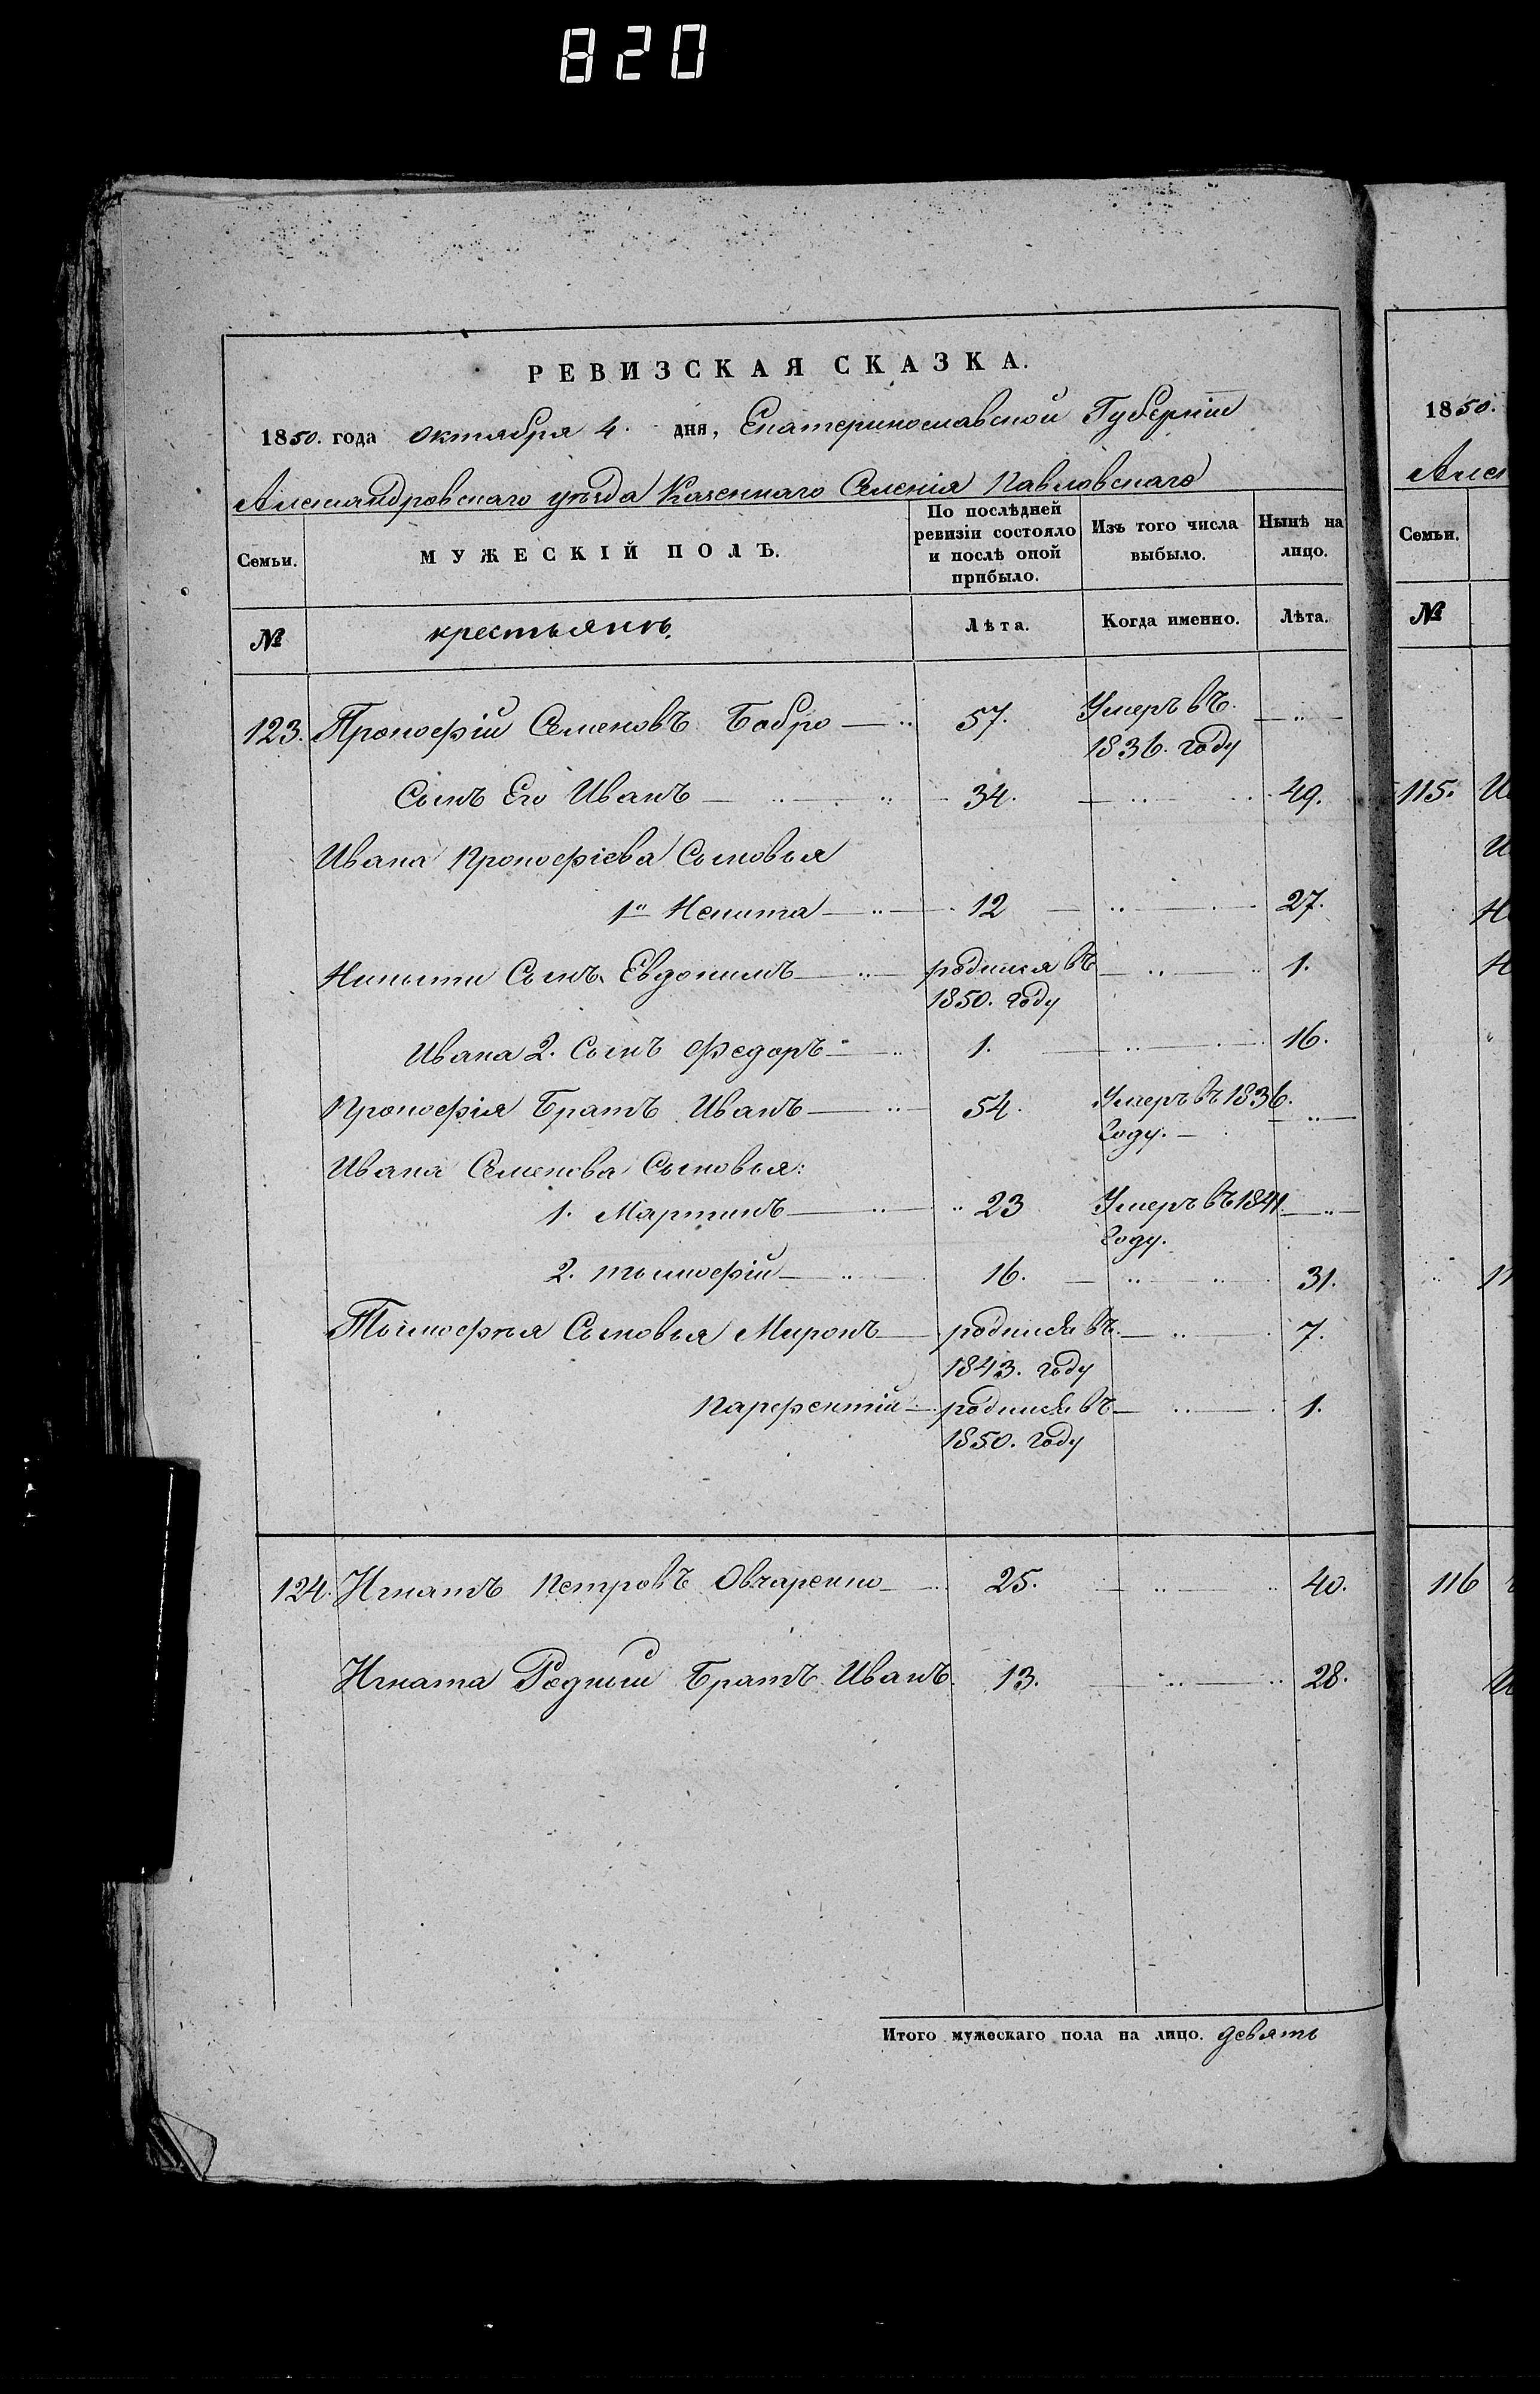 820
РЕВИЗСКАЯ СКАЗКА.
1850. года октября 4. дня, Екатеринославской Губерніи
Александровскаго уѣзда Казеннаго Селенія Павловскаго
Семьи. МУЖЕСКІЙ ПОЛЪ. По послѣдней ревизіи состояло и послѣ оной прибыло. Изъ того числа выбыло. Нынѣ на лицо.
№ крестьянъ. Лѣта. Когда именно. Лѣта.
123. Прокофій Семеновъ Бобро 57. Умеръ въ
1836. году
Сынъ Его Иванъ 34. 49.
Ивана Прокофіева Сыновья
1й Никита 12 27.
Никиты Сынъ Евдокимъ родился въ 1.
1850. году
Ивана 2. Сынъ Федоръ 1. 16.
Прокофія Братъ Иванъ 54. Умеръ въ 1836.
году.
Ивана Семенова Сыновья:
1. Мартинъ 23 Умеръ въ 1841
году.
2. Тымофій 16. 31.
Тымофея Сыновья Миронъ родился въ 7.
1843. году
Парфентій родился въ 1.
1850. году
124. Игнатъ Петровъ Овчаренко 25. 40.
Игната Родный Братъ Иванъ 13. 28.
Итого мужескаго пола на лицо. девять
1850.
Алек
Семьи.
№
115. И
И
Н
Н
116
И